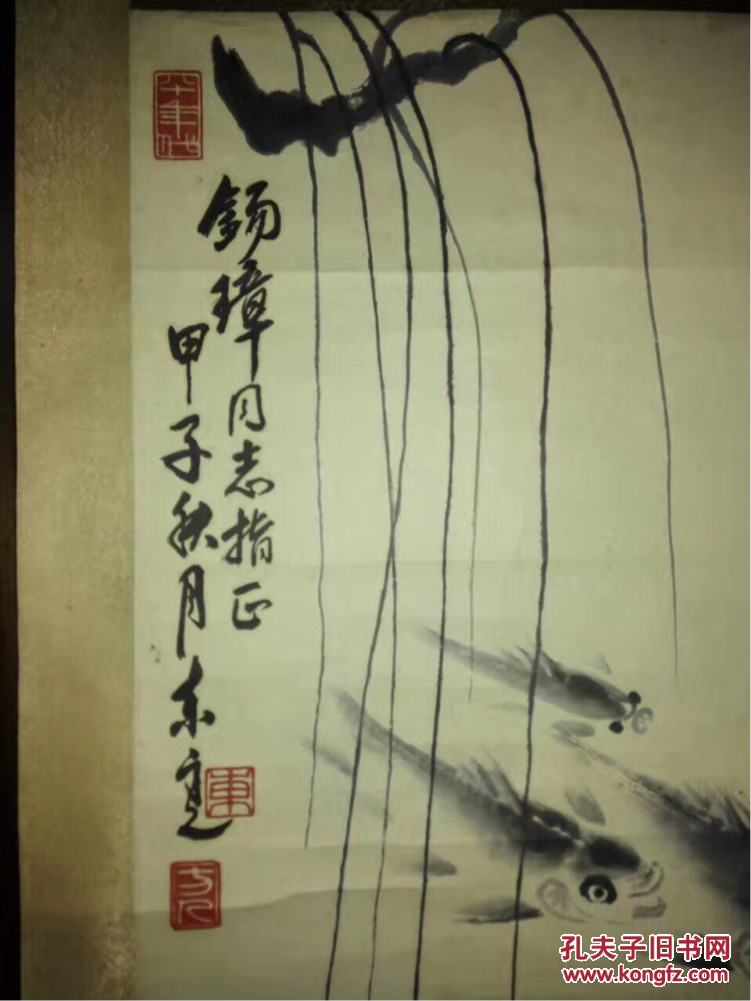 八十年代
錫璋同志指正
甲子秋月东
東
孔夫子旧书网
www.kongfz.com